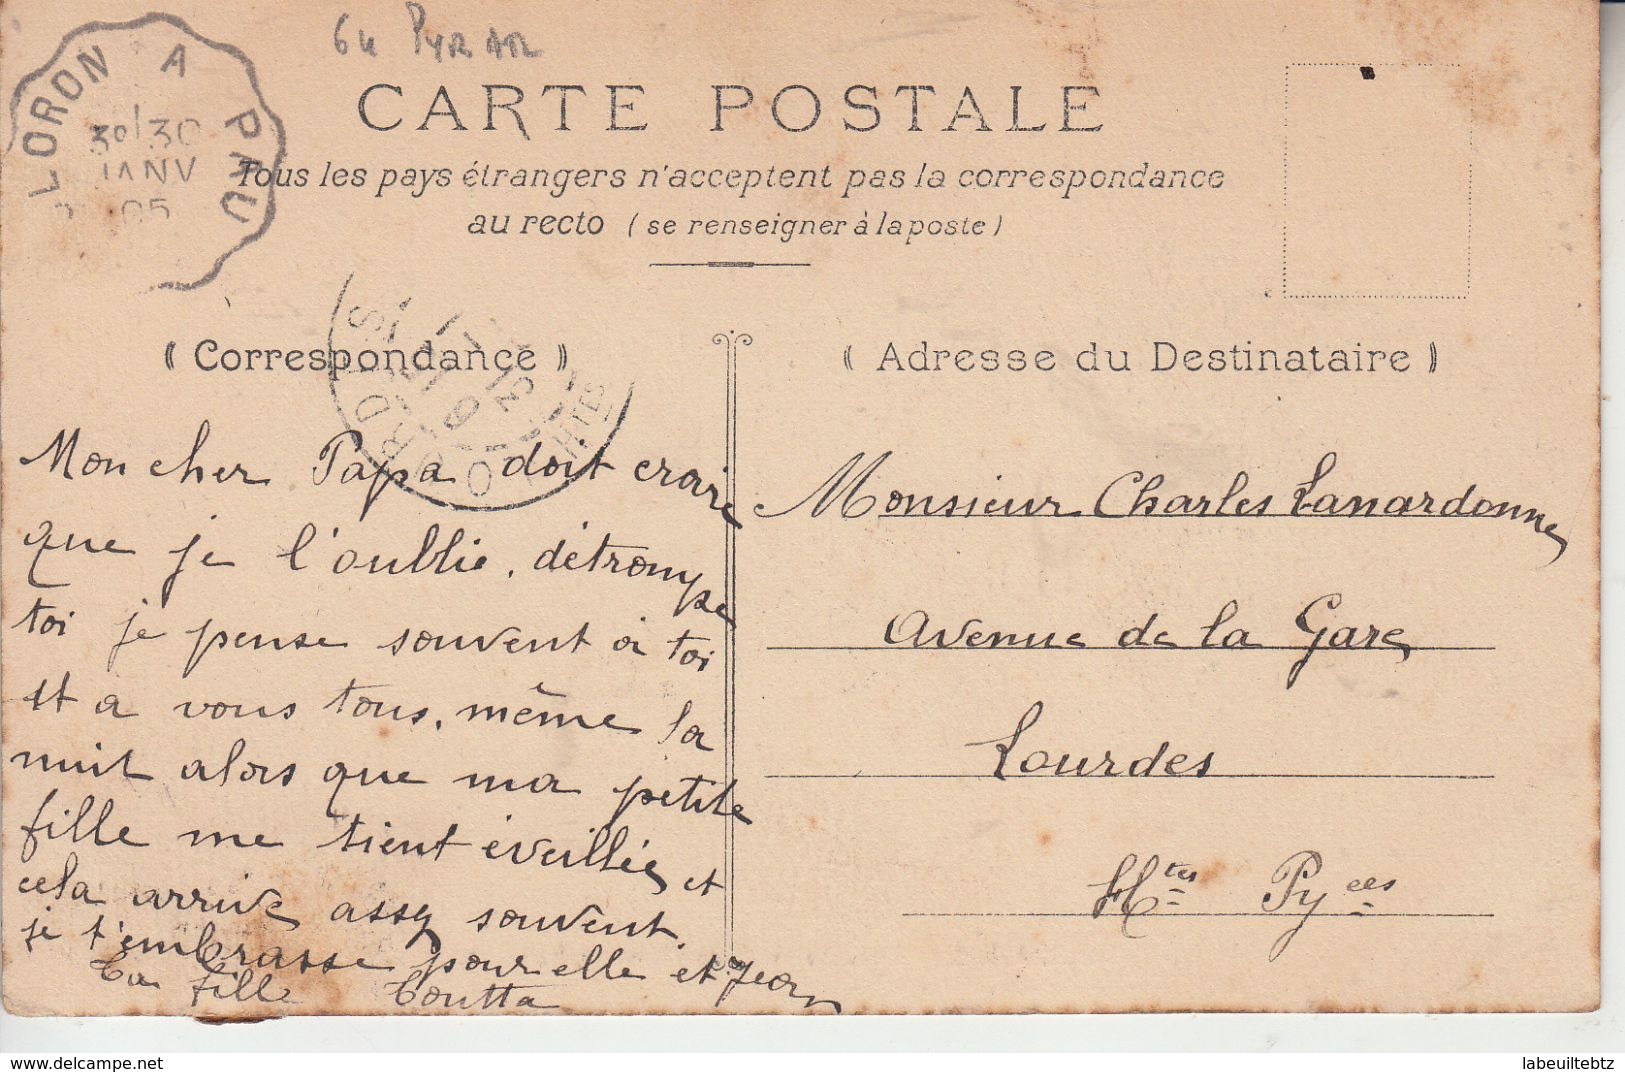 64 PYR AR
OLORON A PAU
30 / 30
JANV
05
CARTE POSTALE
Tous les pays étrangers n'acceptent pas la correspondance
au recto (se renseigner à la poste)
LOURDES
HTES
« Correspondance »
« Adresse du Destinataire »
Mon cher Papa doit croire
que je l'oublie, détrompe
toi je pense souvent à toi
et a vous tous, même la
nuit alors que ma petite
fille me tient éveillée et
cela arrive assez souvent.
je t'embrasse pour elle et Jean
Ta fille Toutta
Monsieur Charles Lanardonne
Avenue de la Gare
Lourdes
Htes Pyées
www.delcampe.net
labeuiltebtz